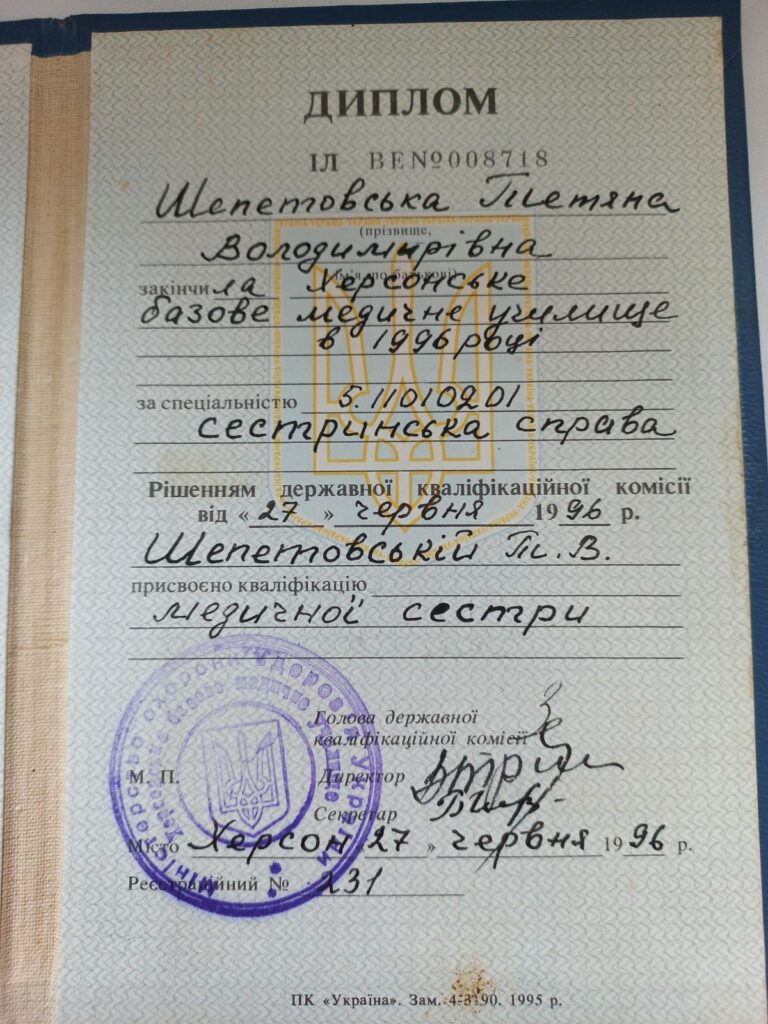 ДИПЛОМ
ІЛ ВЕ№008718
Шепетовська Тетяна
(прізвище,
Володимирівна
ім'я, по батькові)
закінчила Херсонське
базове медичне училище
в 1996 році
за спеціальністю 5.11010201
сестринська справа
Рішенням державної кваліфікаційної комісії
від «27» червня 1996 р.
Шепетовській Т.В.
присвоєно кваліфікацію
медичної сестри
Голова державної
кваліфікаційної комісії
М. П. Директор
Секретар
Місто Херсон «27» червня 1996 р.
Реєстраційний № 231
Міністерство охорони здоров'я України
Херсонське базове медичне училище
ПК «Україна». Зам. 4-3190. 1995 р.